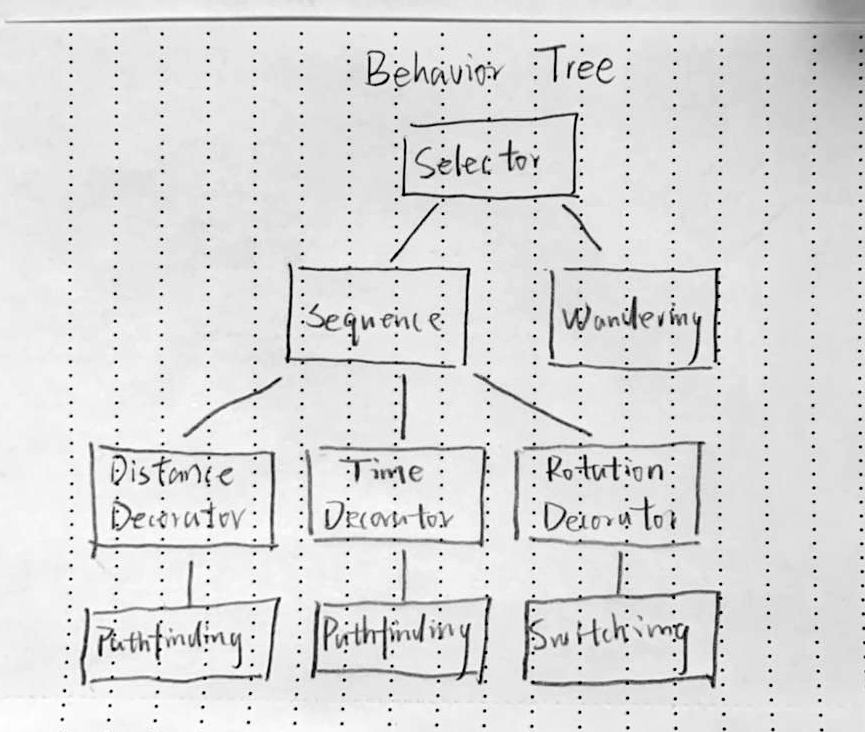 Behavior Tree
Selector
Sequence
Wandering
Distance
Decorator
Time
Decorator
Rotation
Decorator
Pathfinding
Pathfinding
Switching